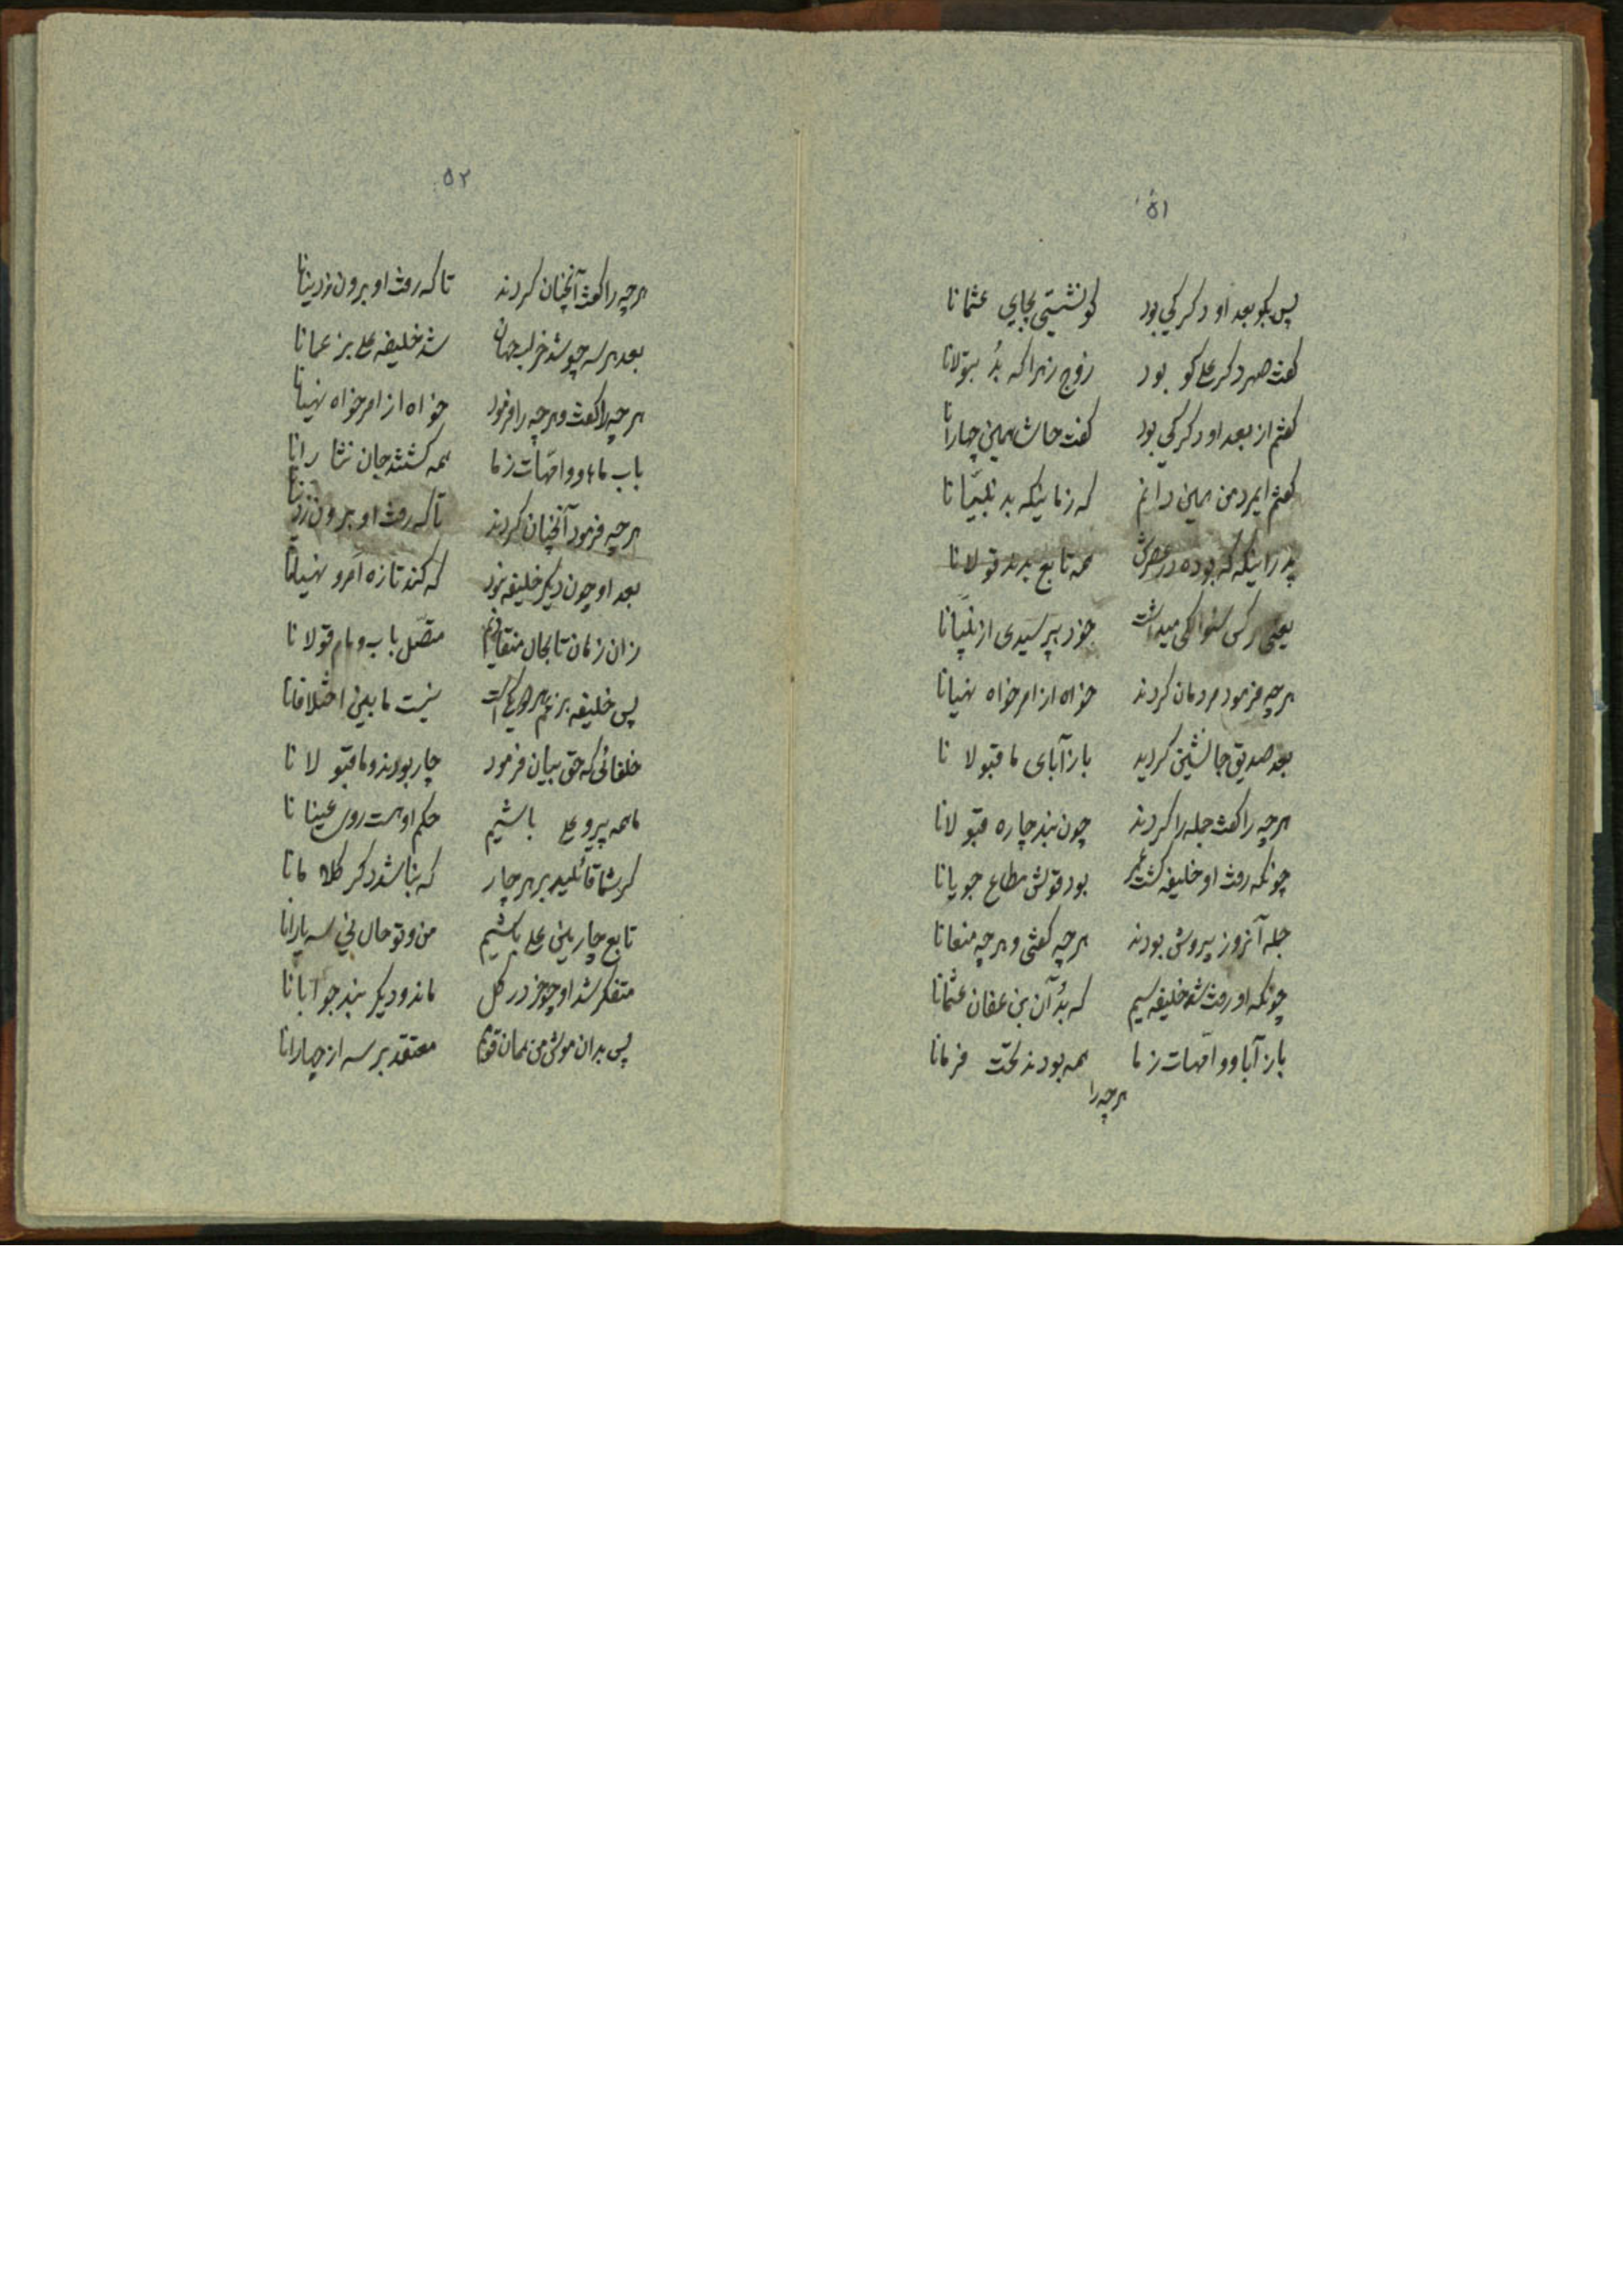 ۵۱
پس بگو بعد او دگر کی بود کو نشستی بجای عثمانا
گفت صهر دگر علی کو بود زوج زهرا که بُد بتولانا
گفتم از بعد او دگر کی بود گفت حاشا همین چهارانا
گفتم ایمرد من همین دانم که زمانیکه بد نبیّانا
هر زمانیکه بوده در عصرش همه تابع بدند قولانا
یعنی هر کس سئوالکی میداشت خود بپرسیدی از نبیّانا
هرچه فرمود مردمان کردند خواه از امر خواه نهیانا
بعد صدیق جانشین گردید باز آبای ما قبولانا
هرچه را گفت جمله را کردند چون نبد چاره قبولانا
چونکه رفت او خلیفه گشت عمر بود قولش مطاع جویانا
جمله آنروز پیروش بودند هرچه گفتی و هرچه منعانا
چونکه او رفت شد خلیفه سیم که بُد آن بن عفان عثمانا
باز آبا و امّهات ز ما همه بودند تحت فرمانا
هرچه را
۵۲
هرچه را گفت آنچنان کردند تا که رفت او برون ز دنیانا
بعد هر سه چو شد خراب جهان شد خلیفه علی بزعمانا
هرچه را گفت و هرچه را فرمود خواه از امر خواه نهیانا
باب ماها و امّهات ز ما همه گشتند جان نثارانا
هرچه فرمود آنچنان کردند تا که رفت او برون ز دنیانا
بعد او چون دگر خلیفه نبود که کند تازه امر و نهیانا
زان زمان تا بحال منقادیم متصل باب و مام قولانا
پس خلیفه بزعم هر دو یکی است نیست مابین اختلافانا
خلفائی که حق بیان فرمود چار بودند و ما قبولانا
ما همه پیرو علی باشیم حکم او هست روی عینانا
گر شما قائلید بر هر چار که نباشد دگر کلامانا
تابع چارمین علی باشیم من و تو حال نی سه یارانا
متفکر شد او چو خر در گل ماند و دیگر نبد جوابانا
پس بدان مولش من همان قوم معتقد بر سه از چهارانا